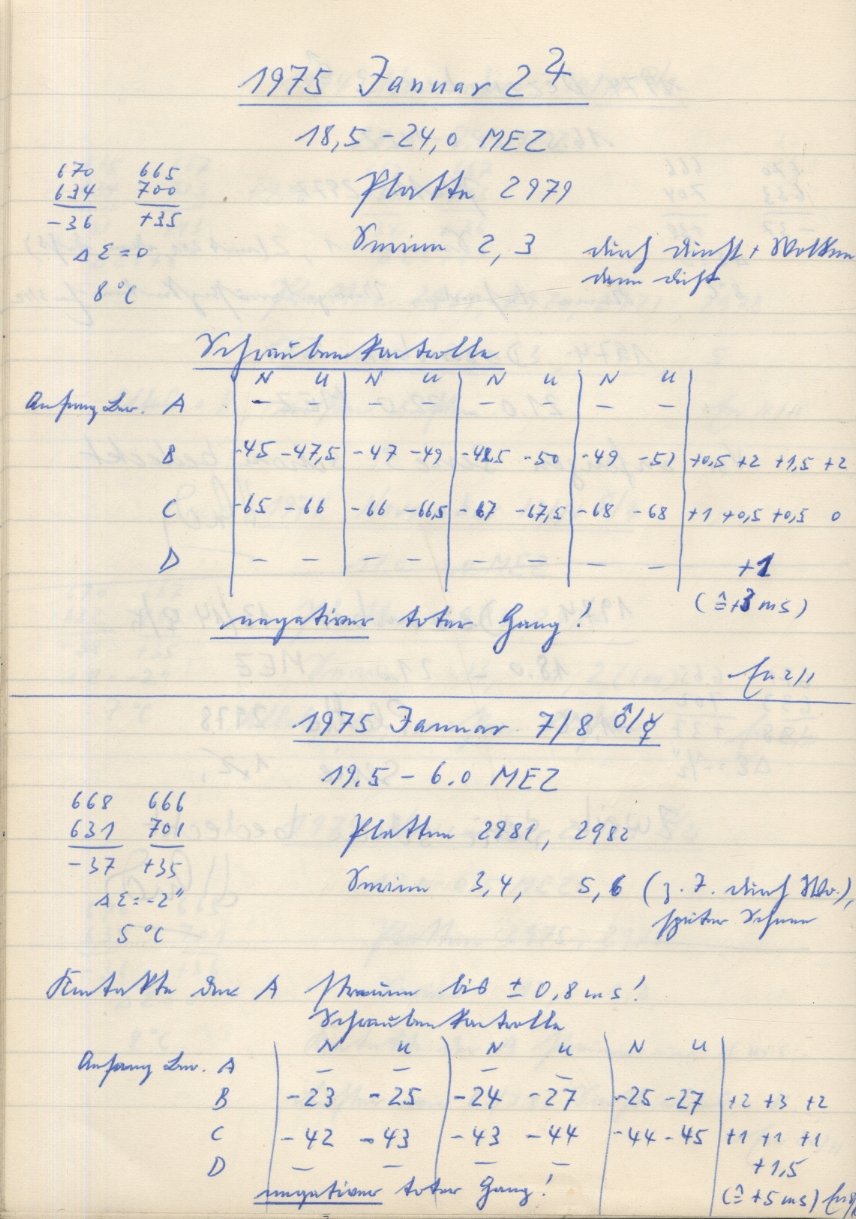 1975 Januar 2 ♃
18,5 - 24,0 MEZ
670 665
634 700
-36 +35
Platte 2979
Δ Σ = 0
Serien 2, 3 durch Dunst + Wolken
dann dicht
8 °C
Schraubenkontrolle
N U N U N U N U
Anfang Lw. A - - - - - - - -
B -45 -47,5 -47 -49 -48,5 -50 -49 -51 +0,5 +2 +1,5 +2
C -65 -66 -66 -66,5 -67 -67,5 -68 -68 +1 +0,5 +0,5 0
D - - - - - - - - +1
(≙+3 ms)
negativer toter Gang!
1975 Januar 7/8 ♂/☿
19.5 - 6.0 MEZ
668 666
631 701
-37 +35
Platten 2981, 2982
Δ Σ = -2"
Serien 3,4, 5,6 (z. T. durch Wo.),
später Schnee
5 °C
Kontakte der A streuen bis ± 0,8 ms!
Schraubenkontrolle
N U N U N U
Anfang Lw. A - - - -
B -23 -25 -24 -27 -25 -27 +2 +3 +2
C -42 -43 -43 -44 -44 -45 +1 +1 +1
D - - - - +1,5
negativer toter Gang! (≙ +5 ms)